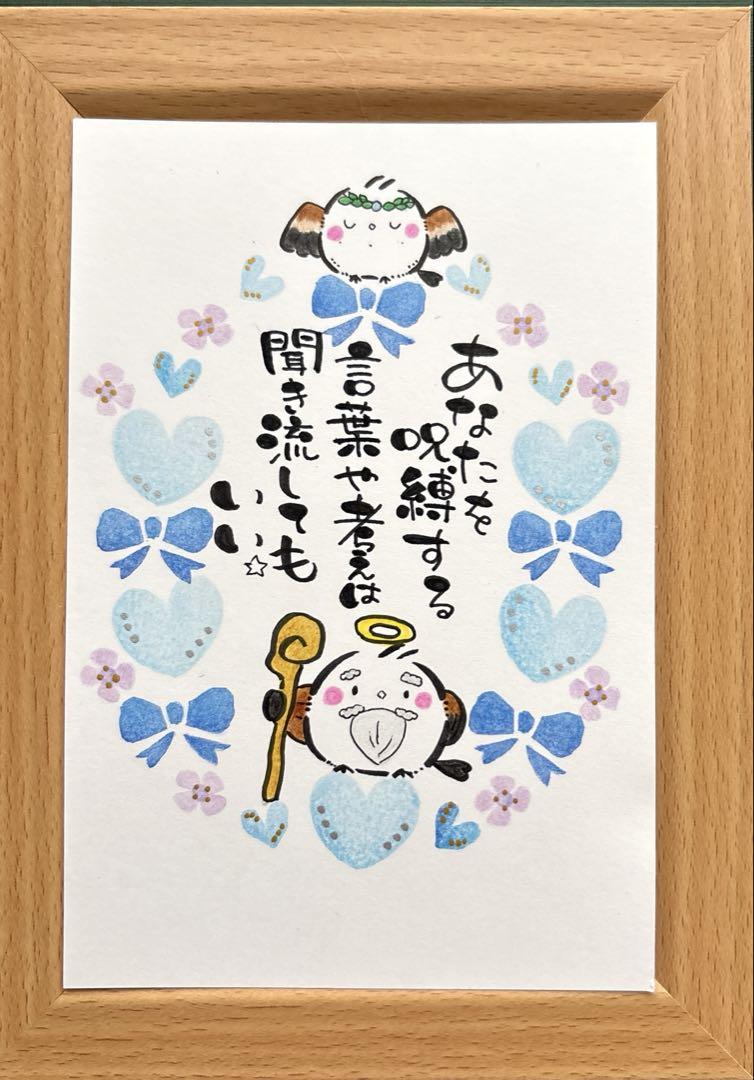 あなたを
呪縛する
言葉や考えは
聞き流しても
いい☆